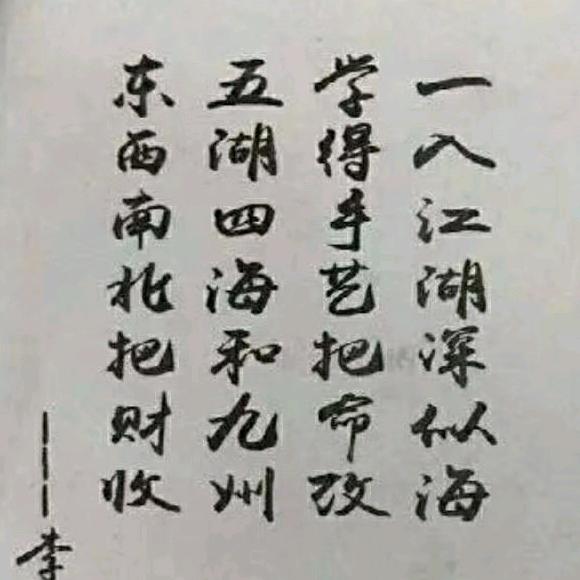 一入江湖深似海
学得手艺把命改
五湖四海和九州
东西南北把财收
———李